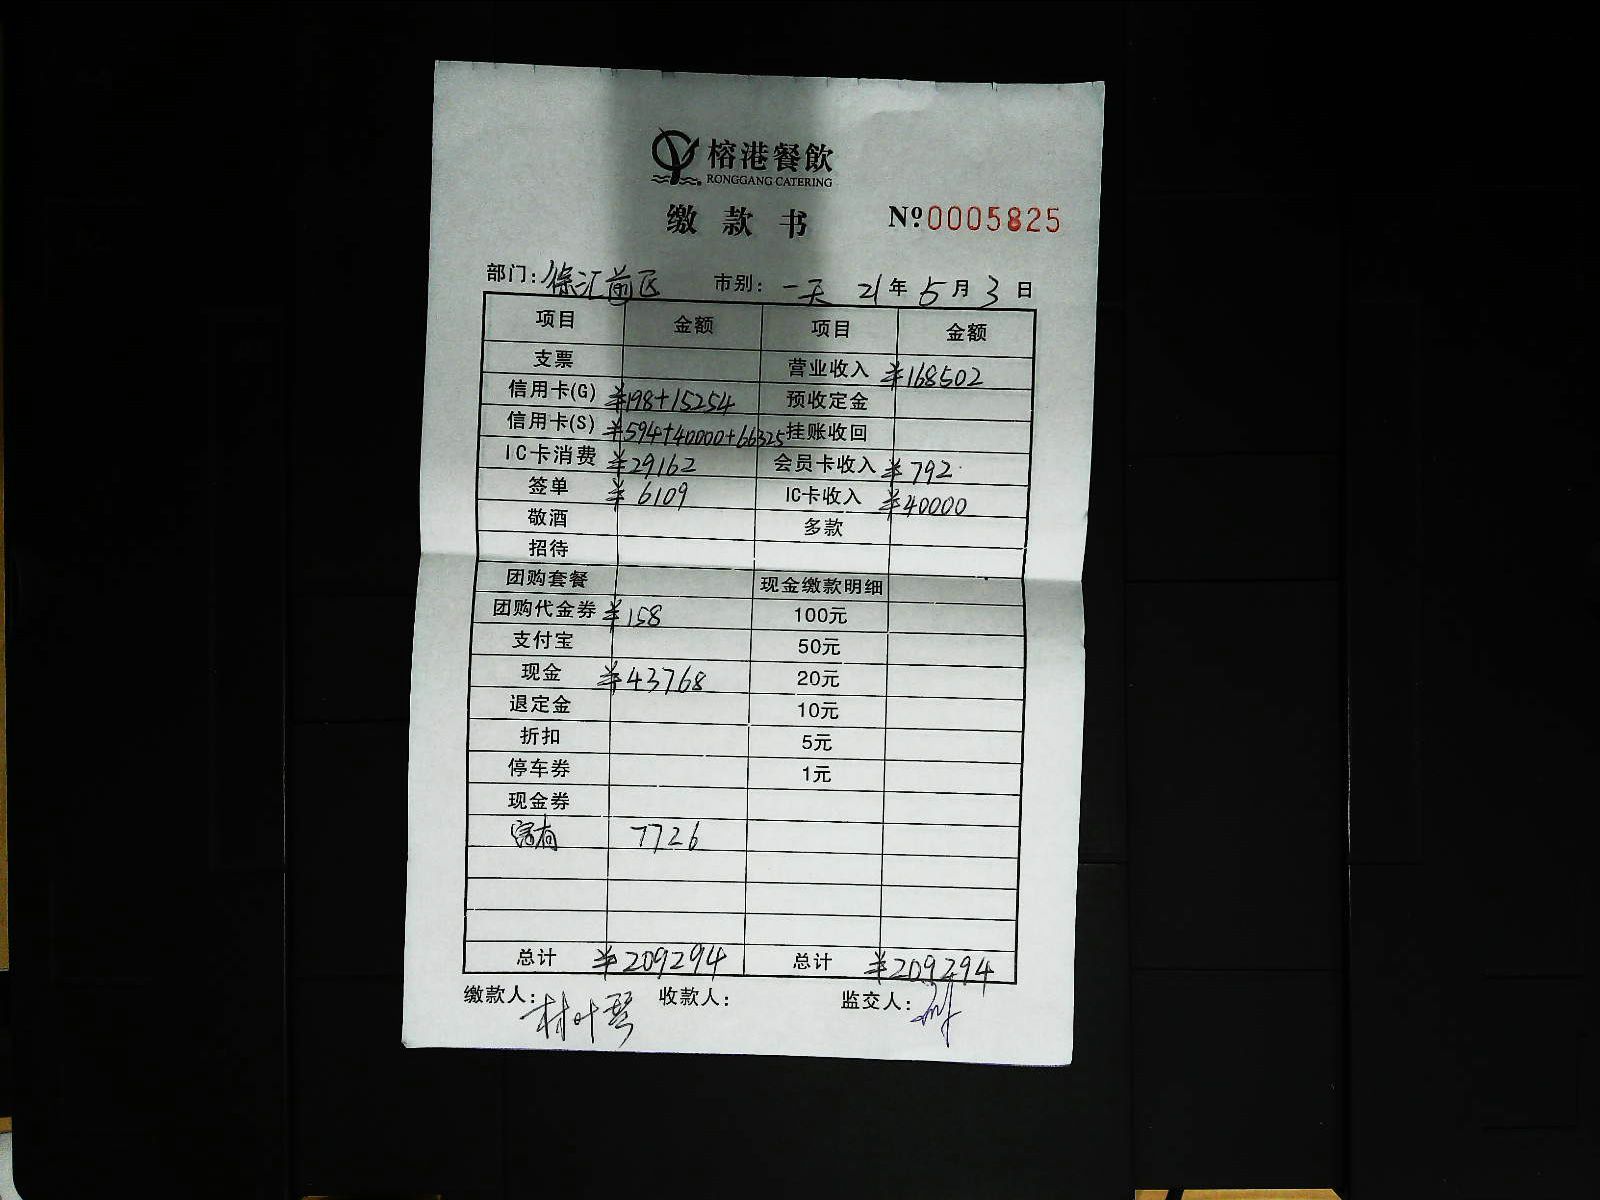 榕港餐飲
RONGGANG CATERING
缴款书 №0005825
部门: 徐汇前区 市别: 一天 21年5月3日
项目 金额 项目 金额
支票 营业收入 ¥168502
信用卡(G) ¥198+15254 预收定金
信用卡(S) ¥594+40000+66325 挂账收回
IC卡消费 ¥29162 会员卡收入 ¥792
签单 ¥6109 IC卡收入 ¥40000
敬酒 多款
招待
团购套餐 现金缴款明细
团购代金券 ¥158 100元
支付宝 50元
现金 ¥43768 20元
退定金 10元
折扣 5元
停车券 1元
现金券
7726
总计 ¥209294 总计 ¥209294
缴款人: 林叶琴 收款人: 监交人: